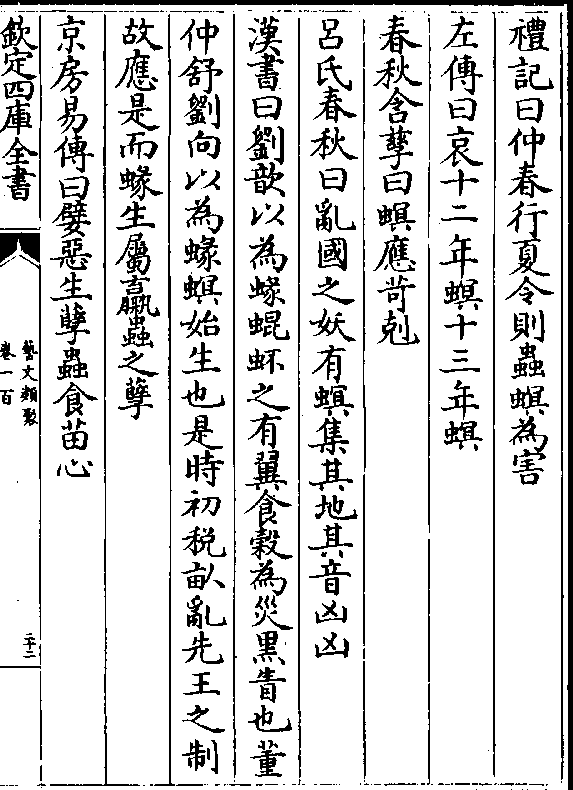 禮記曰仲春行夏令則蟲螟為害
左傳曰哀十二年螟十三年螟
春秋含孳曰螟應苛剋
呂氏春秋曰亂國之妖有螟集其地其音凶凶
漢書曰劉歆以為蝝蚍蚍之有翼食穀為災黑眚也董
仲舒劉向以為蝝螟始生也是時初税畝亂先王之制
故應是而蝝生屬蠃蟲之孽
京房易傳曰嬖惡生孽蟲食苗心
欽定四庫全書
藝文類聚
卷一百
二十二